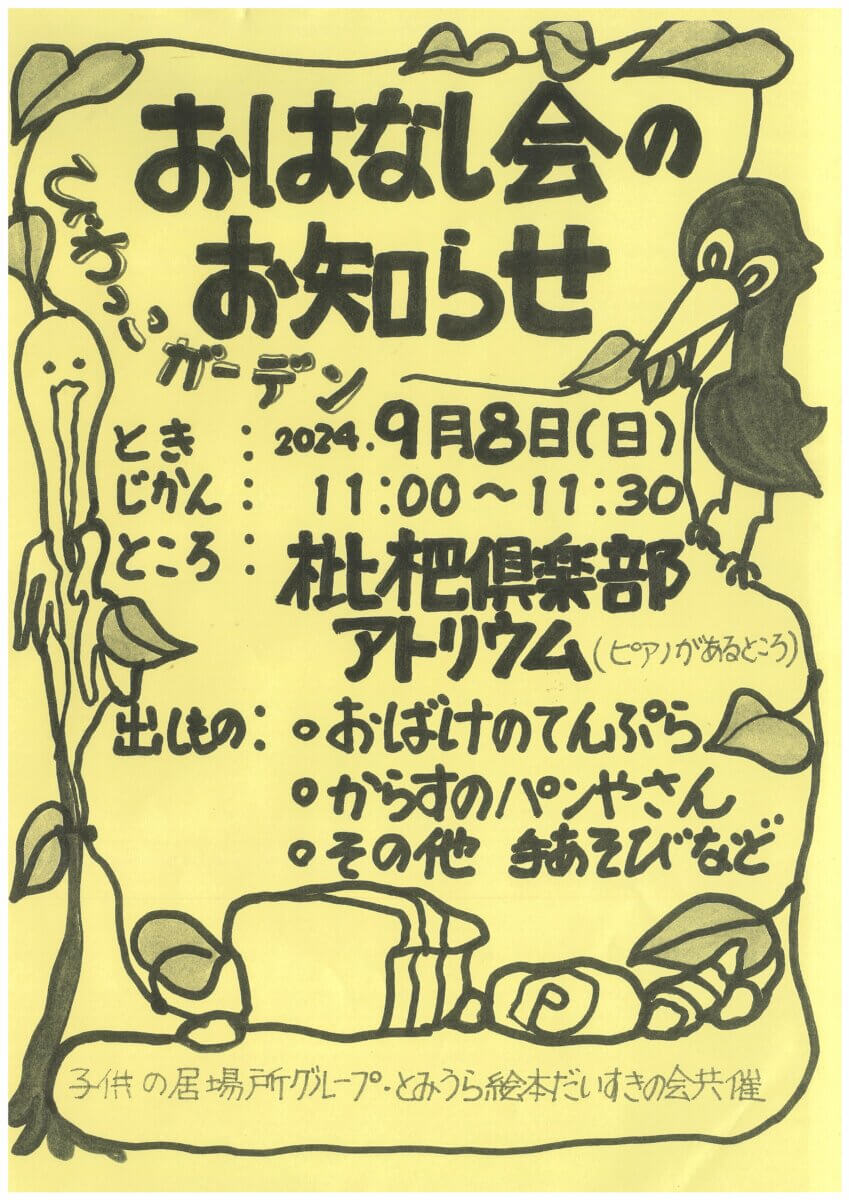 おはなし会の
お知らせ
ガーデン
とき : 2024. 9月8日(日)
じかん : 11:00〜11:30
ところ : 枇杷倶楽部
アトリウム(ピアノがあるところ)
出しもの: ○おばけのてんぷら
○からすのパンやさん
○その他 手あそびなど
子供の居場所グループ・とみうら絵本だいすきの会共催